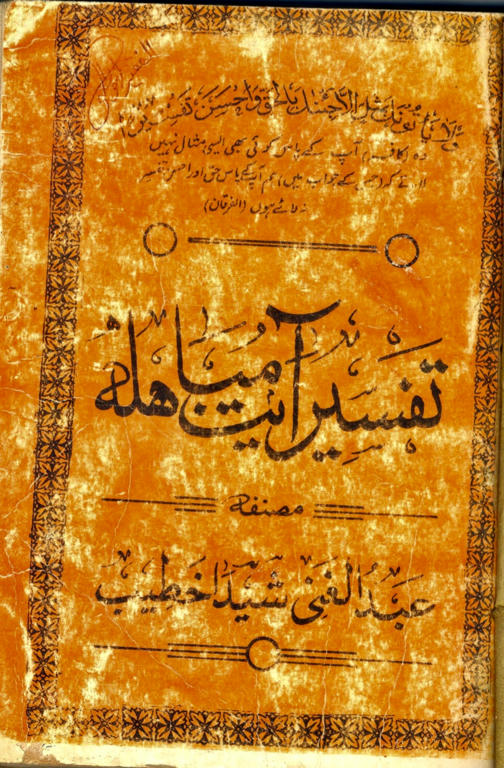 ولا یاتونک بمثل الا جئنٰک بالحق واحسن تفسیرا
وہ (کافر) آپ کے پاس کوئی بھی ایسی مثال نہیں
لاتے کہ (جس کے جواب میں) ہم آپ کے پاس حق اور احسن تفسیر
نہ لائے ہوں (الفرقان)
تفسیر آیت مباھلہ
مصنفہ
عبد الغنی شیدا خطیب